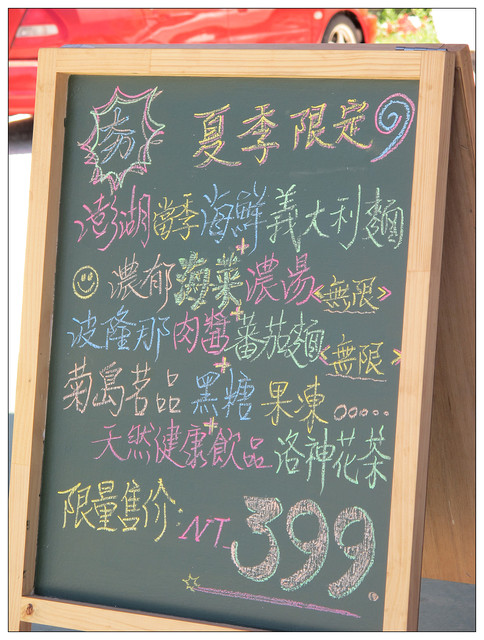 夯 夏季限定
澎湖當季海鮮義大利麵
+
濃郁海菜濃湯《無限》
+
波隆那肉醬蕃茄麵《無限》
+
菊島茗品黑糖果凍。。....
+
天然健康飲品洛神花茶
限量售价:NT 399.